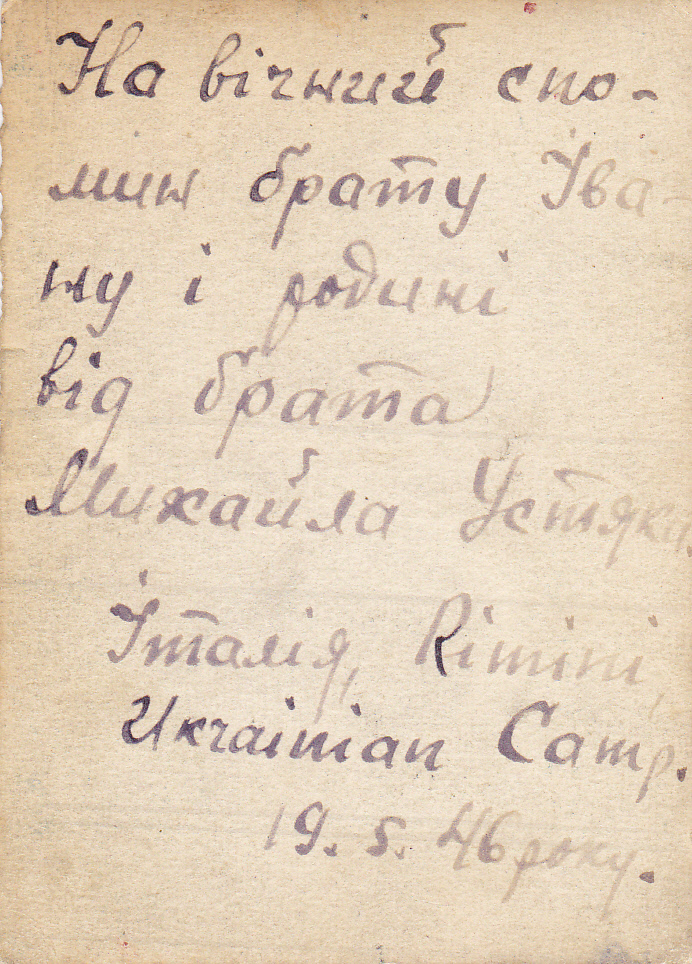 На вічний спо-
мин брату Іва-
ну і родині
від брата
Михайла Устяка.
Італія, Rimini,
Ukrainian Camp.
19. 5. 46 року.